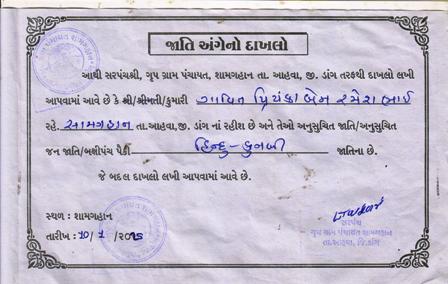 જાતિ અંગેનો દાખલો
આથી સરપંચશ્રી, ગૃપ ગ્રામ પંચાયત, શામગહાન તા. આહવા, જી. ડાંગ તરફથી દાખલો લખી
આપવામાં આવે છે કે શ્રી/શ્રીમતી/કુમારી ગાવિત પ્રિયંકા બેન રમેશભાઈ
રહે. શામગહાન તા.આહવા,જી. ડાંગ નાં રહીશ છે અને તેઓ અનુસુચિત જાતિ/અનુસુચિત
જન જાતિ/બક્ષીપંચ પૈકી હિન્દુ-કુનબી જાતિના છે.
જે બદલ દાખલો લખી આપવામાં આવે છે.
સ્થળ : શામગહાન
તારીખ :
સરપંચ
ગૃપ ગ્રામ પંચાયત શામગહાન
તા.આહવા, જિ.ડાંગ